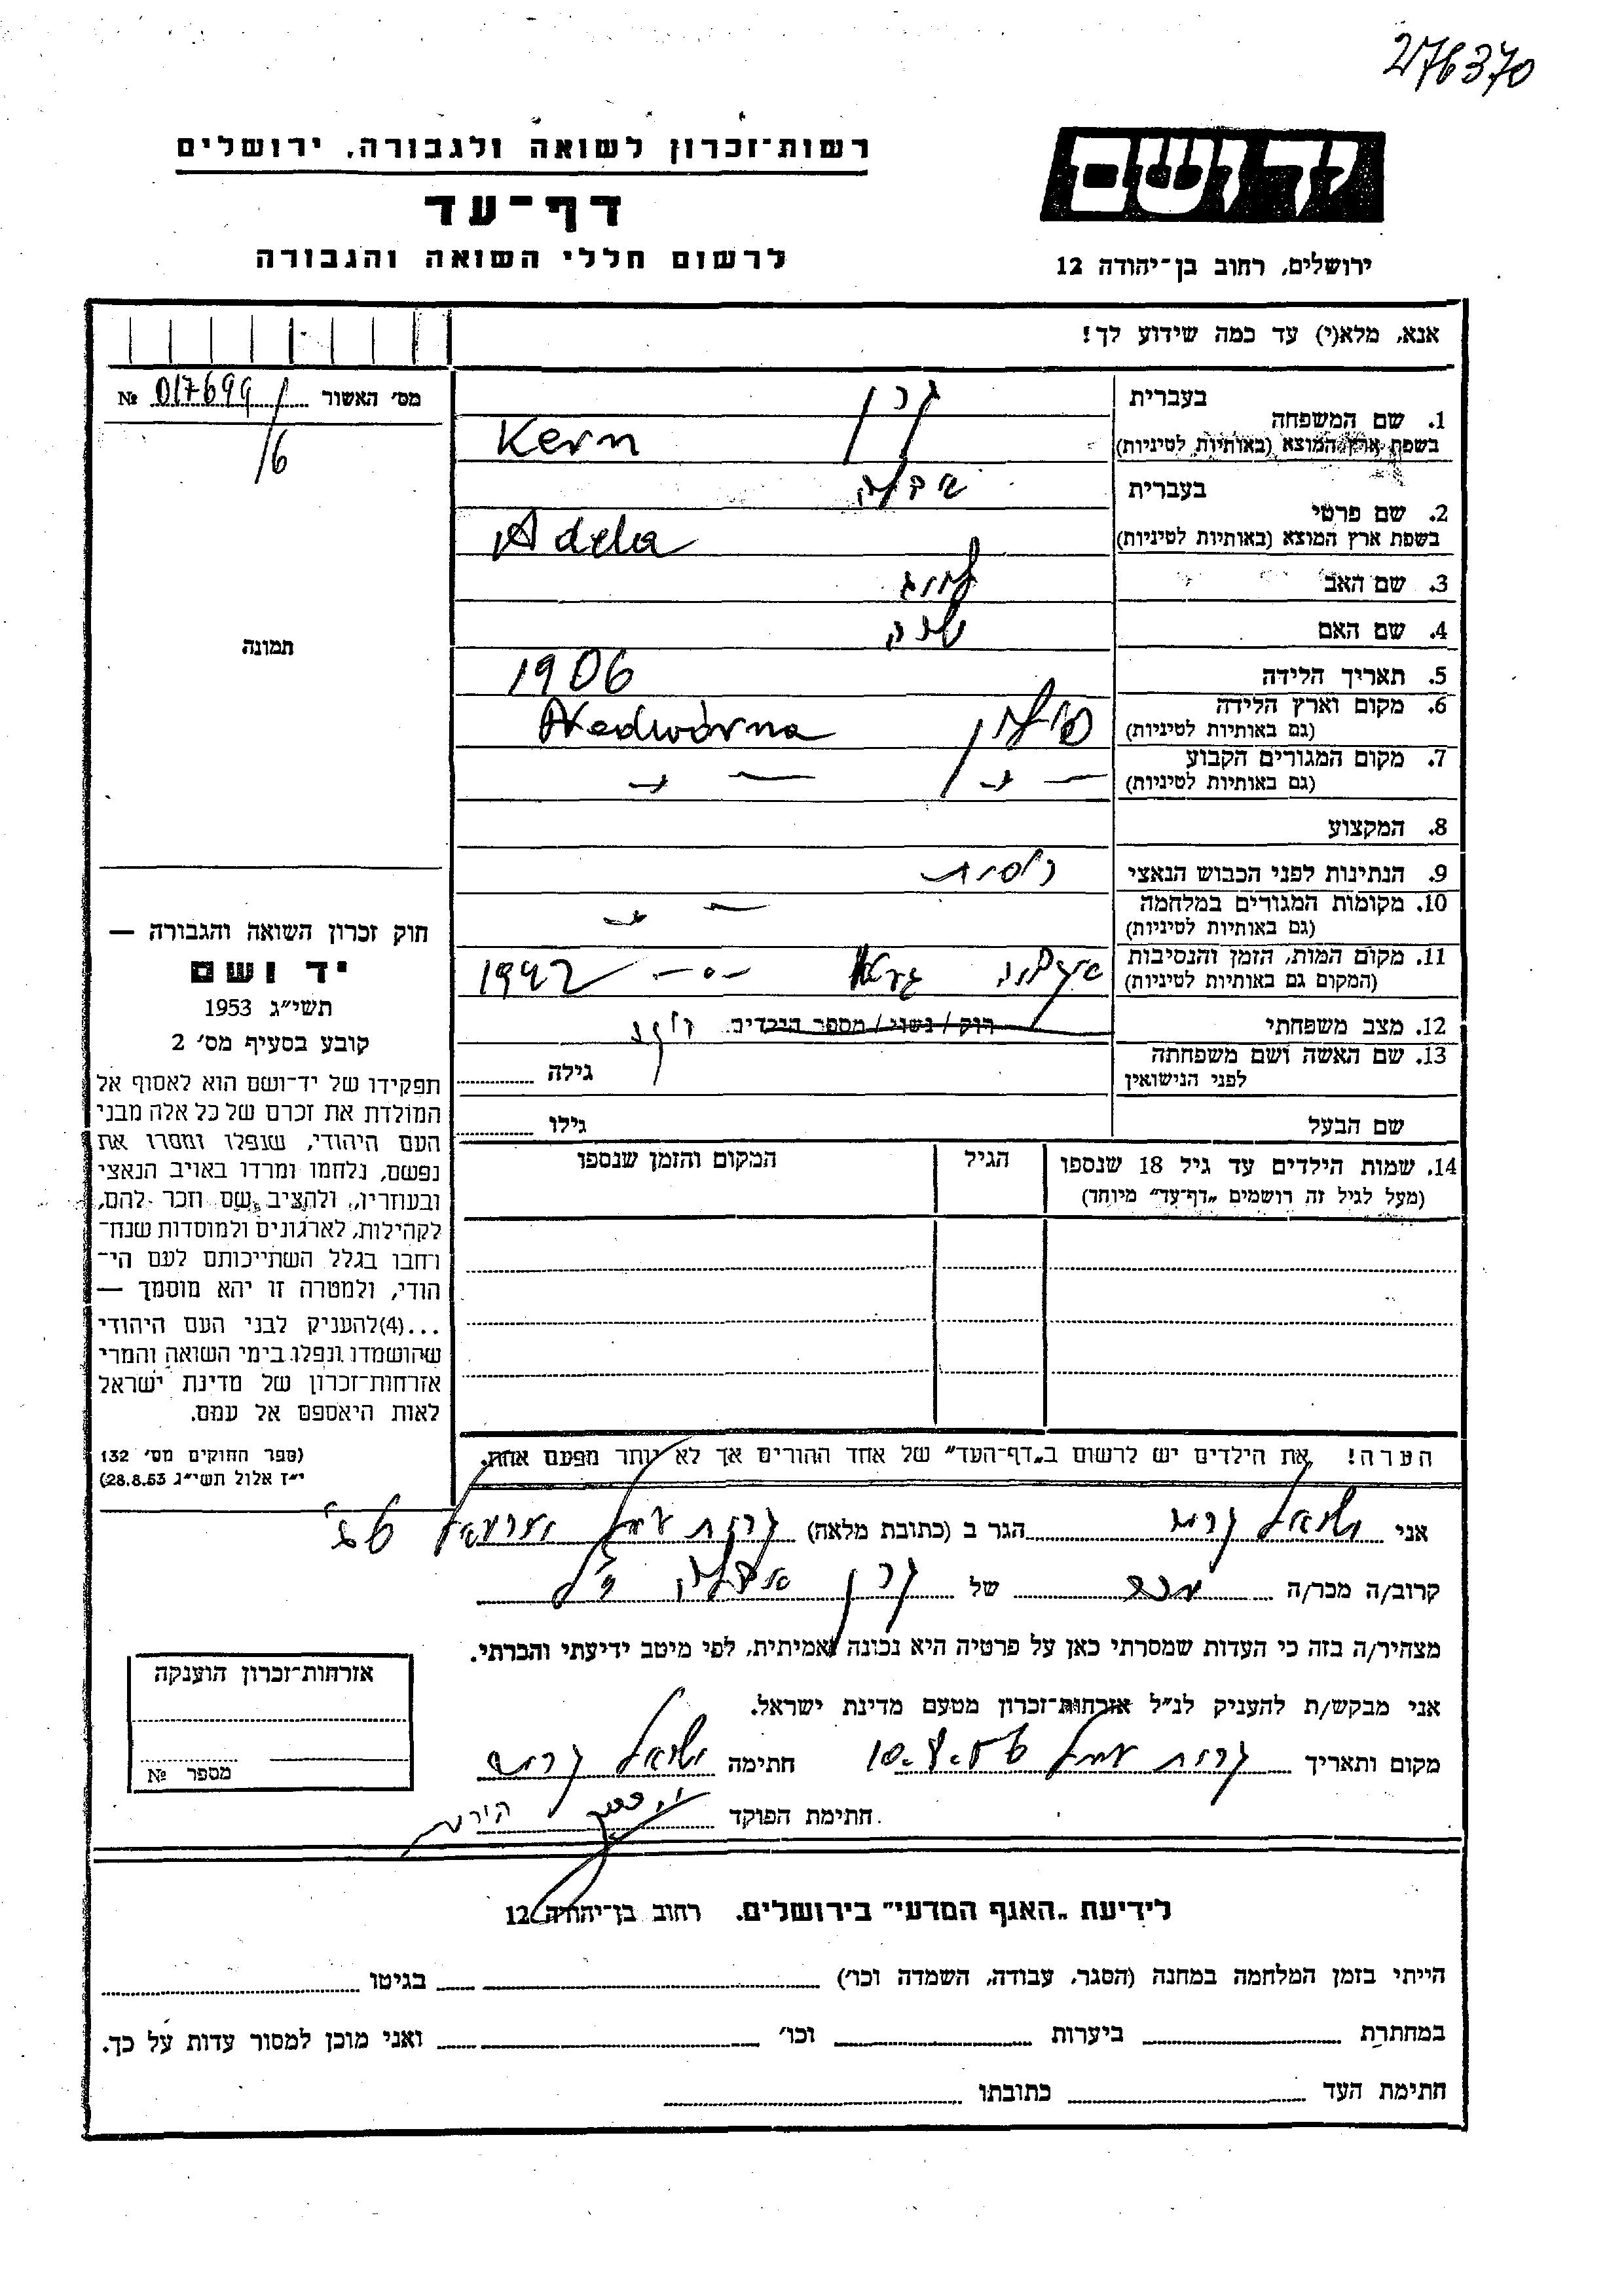 276370
יד ושם
רשות־זכרון לשואה ולגבורה, ירושלים
דף־עד
לרשום חללי השואה והגבורה
ירושלים, רחוב בן־יהודה 12
אנא, מלא(י) עד כמה שידוע לך!
מס׳ האשור 017699 №
16
תמונה
בעברית קרן
1. שם המשפחה
בשפת ארץ המוצא (באותיות לטיניות) Kern
בעברית אדלה
2. שם פרטי
בשפת ארץ המוצא (באותיות לטיניות) Adela
3. שם האב
4. שם האם
5. תאריך הלידה 1906
6. מקום וארץ הלידה פולין Nadwórna
(גם באותיות לטיניות)
7. מקום המגורים הקבוע
(גם באותיות לטיניות)
8. המקצוע
9. הנתינות לפני הכבוש הנאצי פולנית
10. מקומות המגורים במלחמה
(גם באותיות לטיניות)
11. מקום המות, הזמן והנסיבות 1942
(המקום גם באותיות לטיניות)
12. מצב משפחתי רוק / נשוי / מספר הילדים
13. שם האשה ושם משפחתה
לפני הנישואין גילה
שם הבעל גילו
14. שמות הילדים עד גיל 18 שנספו הגיל המקום והזמן שנספו
(מעל לגיל זה רושמים „דף־עד״ מיוחד)
הערה! את הילדים יש לרשום ב„דף־העד״ של אחד ההורים אך לא יותר מפעם אחת.
חוק זכרון השואה והגבורה —
יד ושם
תשי״ג 1953
קובע בסעיף מס׳ 2
תפקידו של יד־ושם הוא לאסוף אל
המולדת את זכרם של כל אלה מבני
העם היהודי, שנפלו ומסרו את
נפשם, נלחמו ומרדו באויב הנאצי
ובעוזריו, ולהציב שם וזכר להם,
לקהילות, לארגונים ולמוסדות שנח־
רחבו בגלל השתייכותם לעם הי־
הודי, ולמטרה זו יהא מוסמך —
...(4) להעניק לבני העם היהודי
שהושמדו ונפלו בימי השואה והמרי
אזרחות־זכרון של מדינת ישראל
לאות היאספם אל עמם.
(ספר החוקים מס׳ 132
י״ז אלול תשי״ג 28.8.53)
אני הגר ב (כתובת מלאה) קרית
קרוב/ה מכר/ה של קרן אדלה ז״ל
מצהיר/ה בזה כי העדות שמסרתי כאן על פרטיה היא נכונה ואמיתית, לפי מיטב ידיעתי והכרתי.
אני מבקש/ת להעניק לנ״ל אזרחות־זכרון מטעם מדינת ישראל.
מקום ותאריך קרית חתימה
חתימת הפוקד
אזרחות־זכרון הוענקה
מספר №
לידיעת „האגף המדעי״ בירושלים. רחוב בן־יהודה 12
הייתי בזמן המלחמה במחנה (הסגר, עבודה, השמדה וכו׳) בגיטו
במחתרת ביערות וכו׳ ואני מוכן למסור עדות על כך.
חתימת העד כתובתו